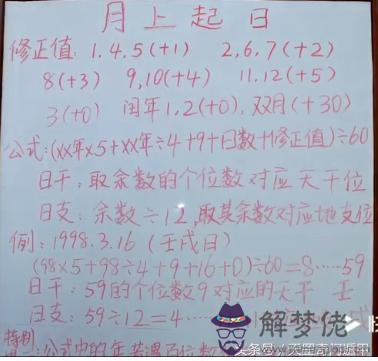 月上起日
修正值: 1.4.5(+1) 2,6,7(+2)
8(+3) 9,10(+4) 11.12(+5)
3(+0) 闰年1,2(+0), 双月(+30)
公式:(xx年×5+xx年÷4+9+日数+修正值)÷60
日干:取余数的个位数对应天干位
日支:余数÷12,取其余数对应地支位
例:1998.3.16(壬戌日)
(98×5+98÷4+9+16+0)÷60=8……59
日干:59的个位数9对应的天干 壬
日支:59÷12=4……
解梦佬
特别
公式中的年